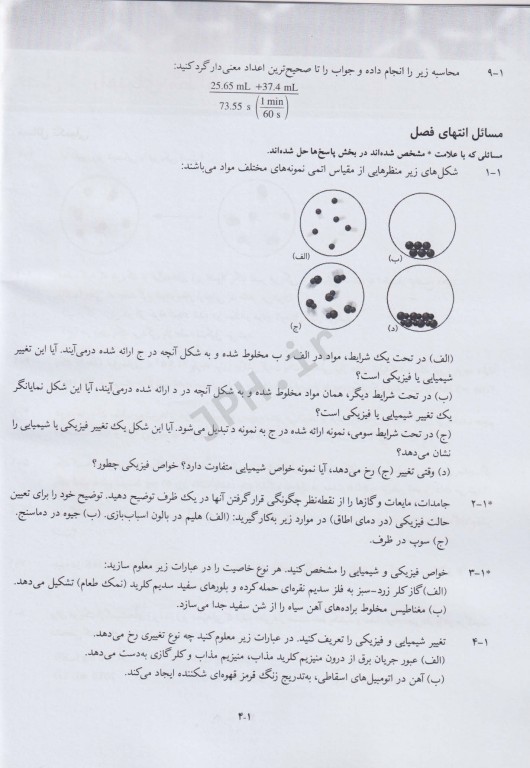 ۹-۱ محاسبه زیر را انجام داده و جواب را تا صحیح‌ترین اعداد معنی‌دار گرد کنید:
25.65 mL +37.4 mL
73.55 s (1 min / 60 s)
مسائل انتهای فصل
مسائلی که با علامت * مشخص شده‌اند در بخش پاسخ‌ها حل شده‌اند.
۱-۱ شکل‌های زیر منظرهایی از مقیاس اتمی نمونه‌های مختلف مواد می‌باشند:
(الف)
(ب)
(ج)
(د)
(الف) در تحت یک شرایط، مواد در الف و ب مخلوط شده و به شکل آنچه در ج ارائه شده درمی‌آیند. آیا این تغییر
شیمیایی یا فیزیکی است؟
(ب) در تحت شرایط دیگر، همان مواد مخلوط شده و به شکل آنچه در د ارائه شده درمی‌آیند، آیا این شکل نمایانگر
یک تغییر شیمیایی یا فیزیکی است؟
(ج) در تحت شرایط سومی، نمونه ارائه شده در ج به نمونه د تبدیل می‌شود. آیا این شکل یک تغییر فیزیکی یا شیمیایی را
نشان می‌دهد؟
(د) وقتی تغییر (ج) رخ می‌دهد، آیا نمونه خواص شیمیایی متفاوت دارد؟ خواص فیزیکی چطور؟
*۲-۱ جامدات، مایعات و گازها را از نقطه‌نظر چگونگی قرار گرفتن آنها در یک ظرف توضیح دهید. توضیح خود را برای تعیین
حالت فیزیکی (در دمای اطاق) در موارد زیر به‌کار گیرید: (الف) هلیم در بالون اسباب‌بازی. (ب) جیوه در دماسنج.
(ج) سوپ در ظرف.
*۳-۱ خواص فیزیکی و شیمیایی را مشخص کنید. هر نوع خاصیت را در عبارات زیر معلوم سازید:
(الف) گاز کلر زرد-سبز به فلز سدیم نقره‌ای حمله کرده و بلورهای سفید سدیم کلرید (نمک طعام) تشکیل می‌دهد.
(ب) مغناطیس مخلوط براده‌های آهن سیاه را از شن سفید جدا می‌سازد.
۴-۱ تغییر شیمیایی و فیزیکی را تعریف کنید. در عبارات زیر معلوم کنید چه نوع تغییری رخ می‌دهد.
(الف) عبور جریان برق از درون منیزیم کلرید مذاب، منیزیم مذاب و کلر گازی به‌دست می‌دهد.
(ب) آهن در اتومبیل‌های اسقاطی، به‌تدریج زنگ قرمز قهوه‌ای شکننده ایجاد می‌کند.
۴-۱
JPH.ir